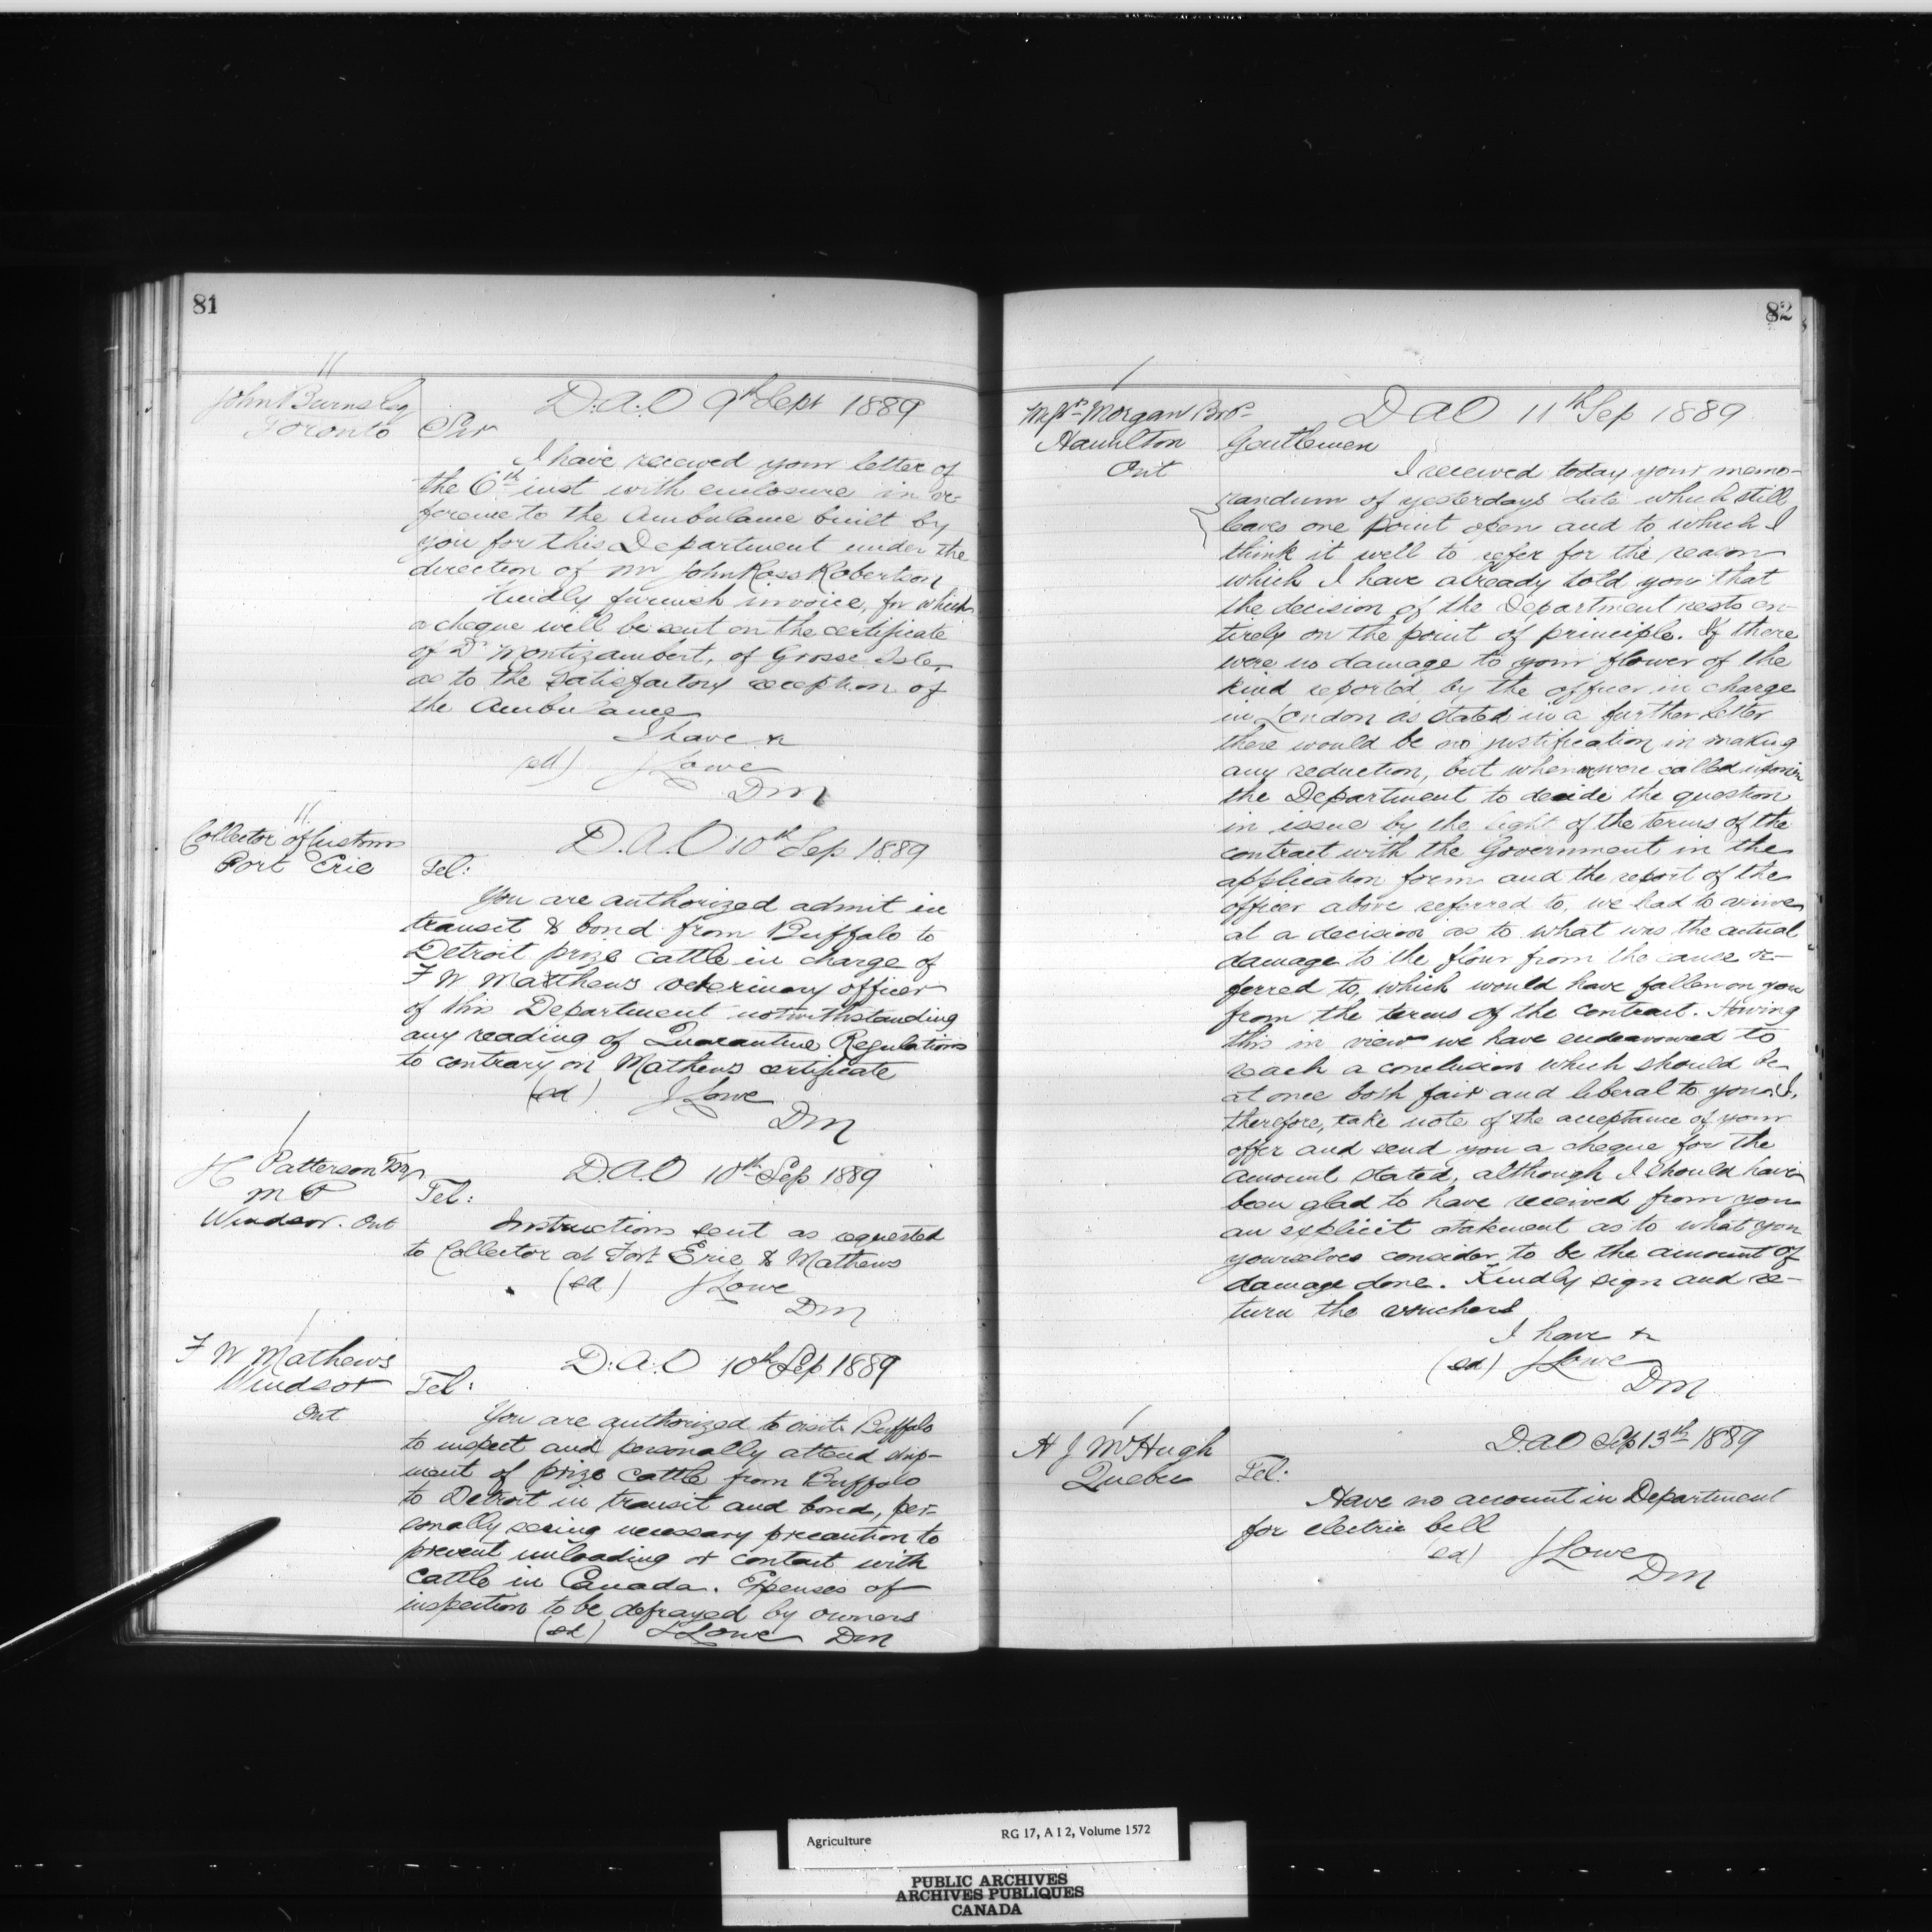 81
John Burnsley
Toronto
D.A.O 9th Sept 1889
Sir
I have received your letter of
the 6th inst with enclosure in re-
ference to the Ambulance built by
you for this Department under the
direction of Mr John Ross Robertson
Kindly furnish invoice, for which
a cheque will be sent on the certificate
of Dr Montizambert, of Grosse Isle,
as to the satisfactory reception of
the Ambulance
I have &
(sd) J Lowe
DM
Collector of Customs
Fort Erie
D.A.O 10th Sep 1889
Tel:
You are authorized admit in
transit & bond from Buffalo to
Detroit prize cattle in charge of
F W Matthews veterinary officer
of this Department notwithstanding
any reading of Quarantine Regulations
to contrary on Mathews certificate
(sd) J Lowe
DM
H Patterson Esq
M P
Windsor. Ont
D.A.O 10th Sep 1889
Tel:
Instructions sent as requested
to Collector at Fort Erie & Mathews
(sd) J Lowe
DM
F W Mathews
Windsor
Ont
D.A.O 10th Sep 1889
Tel:
You are authorized to visit Buffalo
to inspect and personally attend ship-
ment of prize cattle from Buffalo
to Detroit in transit and bond, per-
sonally seeing necessary precaution to
prevent unloading or contact with
cattle in Canada. Expenses of
inspection to be defrayed by owners
(sd) J Lowe DM
82
Messrs Morgan Bros
Hamilton
Ont
D A O 11th Sep 1889
Gentlemen
I received today your memo-
randum of yesterdays date which still
leaves one point open and to which I
think it well to refer for the reason
which I have already told you that
the decision of the Department rests en-
tirely on the point of principle. If there
were no damage to your flower of the
kind reported by the officer in charge
in London as stated in a further letter
there would be no justification in making
any reduction, but when we were called upon in
the Department to decide the question
in issue by the light of the terms of the
contract with the Government in the
application form and the report of the
officer above referred to, we had to arrive
at a decision as to what was the actual
damage to the flour from the cause re-
ferred to, which would have fallen on you
from the terms of the contract. Having
this in view we have endeavoured to
reach a conclusion which should be
at once both fair and liberal to you. I,
therefore, take note of the acceptance of your
offer and send you a cheque for the
amount stated, although I should have
been glad to have received from you
an explicit statement as to what you
yourselves consider to be the amount of
damage done. Kindly sign and re-
turn the vouchers
I have &
(sd) J Lowe
DM
H J McHugh
Quebec
D.A.O Sep 13th 1889
Tel:
Have no account in Department
for electric bell
(sd) J Lowe
DM
Agriculture RG 17, A I 2, Volume 1572
PUBLIC ARCHIVES
ARCHIVES PUBLIQUES
CANADA